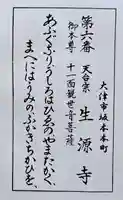 大津市坂本本町
第六番 天台宗 生源寺
御本尊 十一面観世音菩薩
あぶぶりうしろはひゑのやまたかく、
まへにはうみのふかきちかひを、